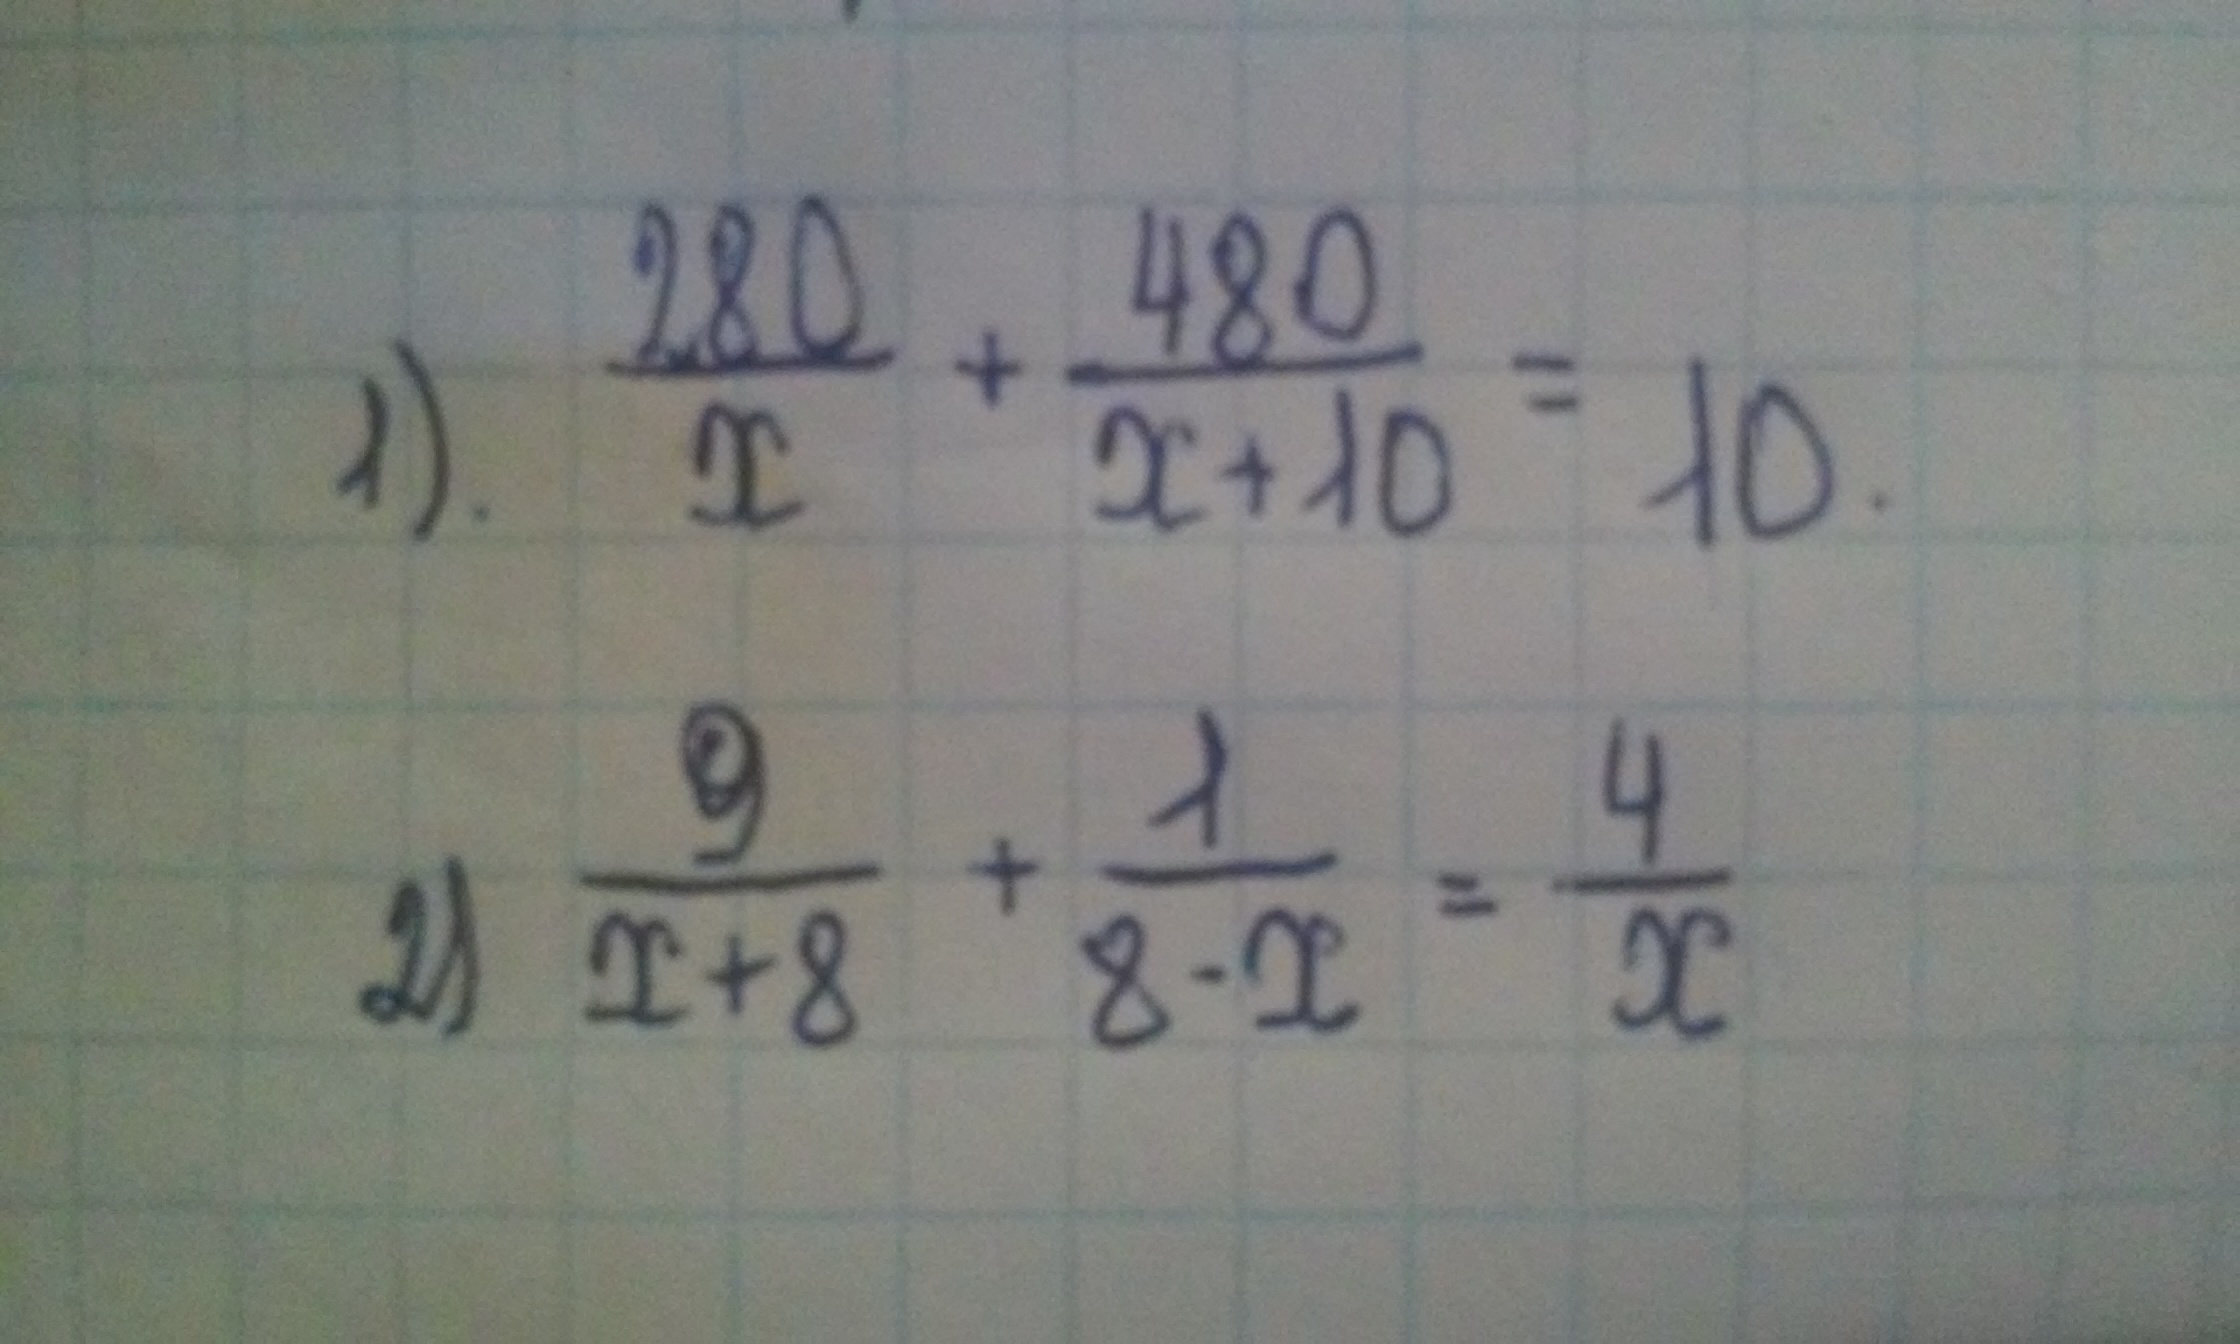 1). 280/x + 480/(x+10) = 10.
2) 9/(x+8) + 1/(8-x) = 4/x